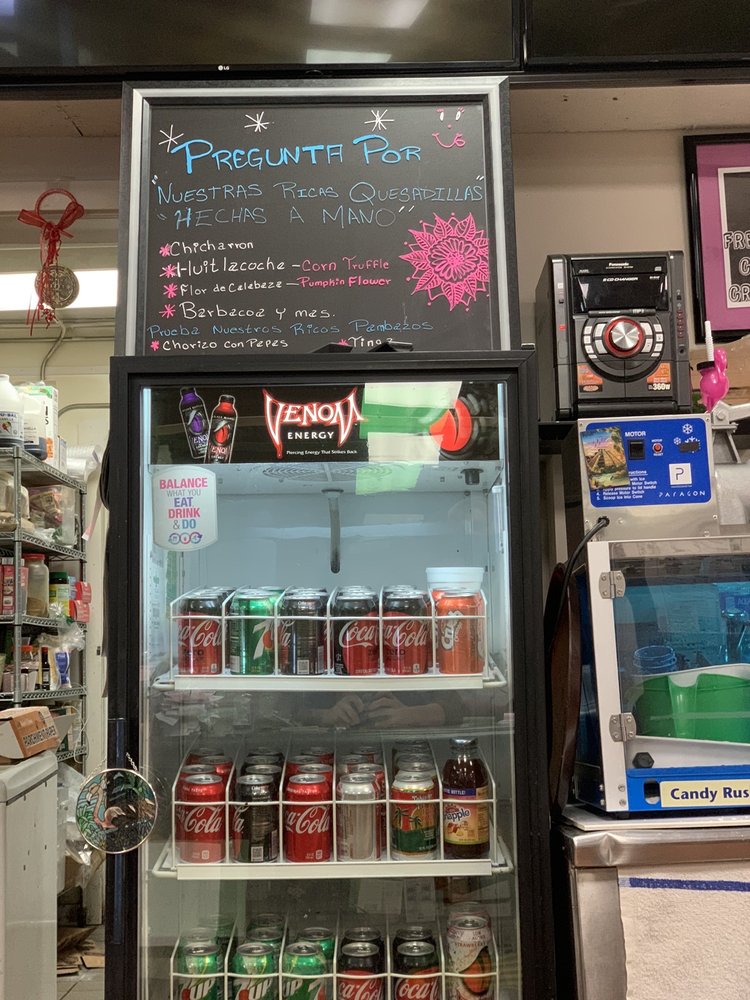 LG
PREGUNTA POR
"NUESTRAS RICAS QUESADILLAS"
"HECHAS A MANO"
*Chicharron
*Huitlacoche - Corn Truffle
*Flor de Calabaza - Pumpkin Flower
*Barbacoa y mas.
Prueba Nuestros Ricos Pambazos
*Chorizo con Papas *Tinga
VENOM
ENERGY
Piercing Energy That Strikes Back
BALANCE
WHAT YOU
EAT
DRINK
& DO
Panasonic
5 CD CHANGER
360W
MOTOR
MOTOR
RELEASE
PARAGON
Candy Rus
Coca-Cola
7
Coca-Cola
Coca-Cola
Coca-Cola
Coca-Cola
Snapple
7UP
7UP
7UP
Coca-Cola
Coca-Cola